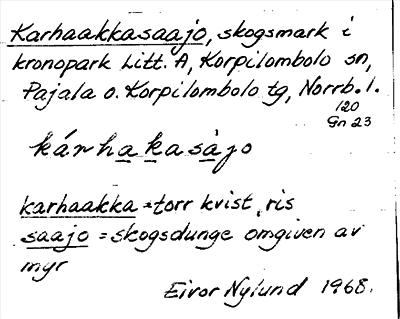 Karhaakkasaajo, skogsmark i
kronopark Litt. A, Korpilombolo sn,
Pajala o. Korpilombolo tg, Norrb. l.
120
Gn 23
kárhakasàjo
karhaakka = torr kvist, ris
saajo = skogsdunge omgiven av
myr
Eivor Nylund 1968.